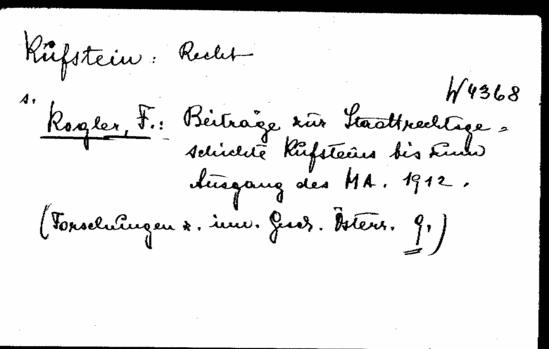 Kufstein: Recht
W 4368
s. Kogler, F.: Beiträge zur Stadtrechtsge-
schichte Kufsteins bis zum
Ausgang des MA. 1912.
(Forschungen z. inn. Gesch. Österr. 9.)